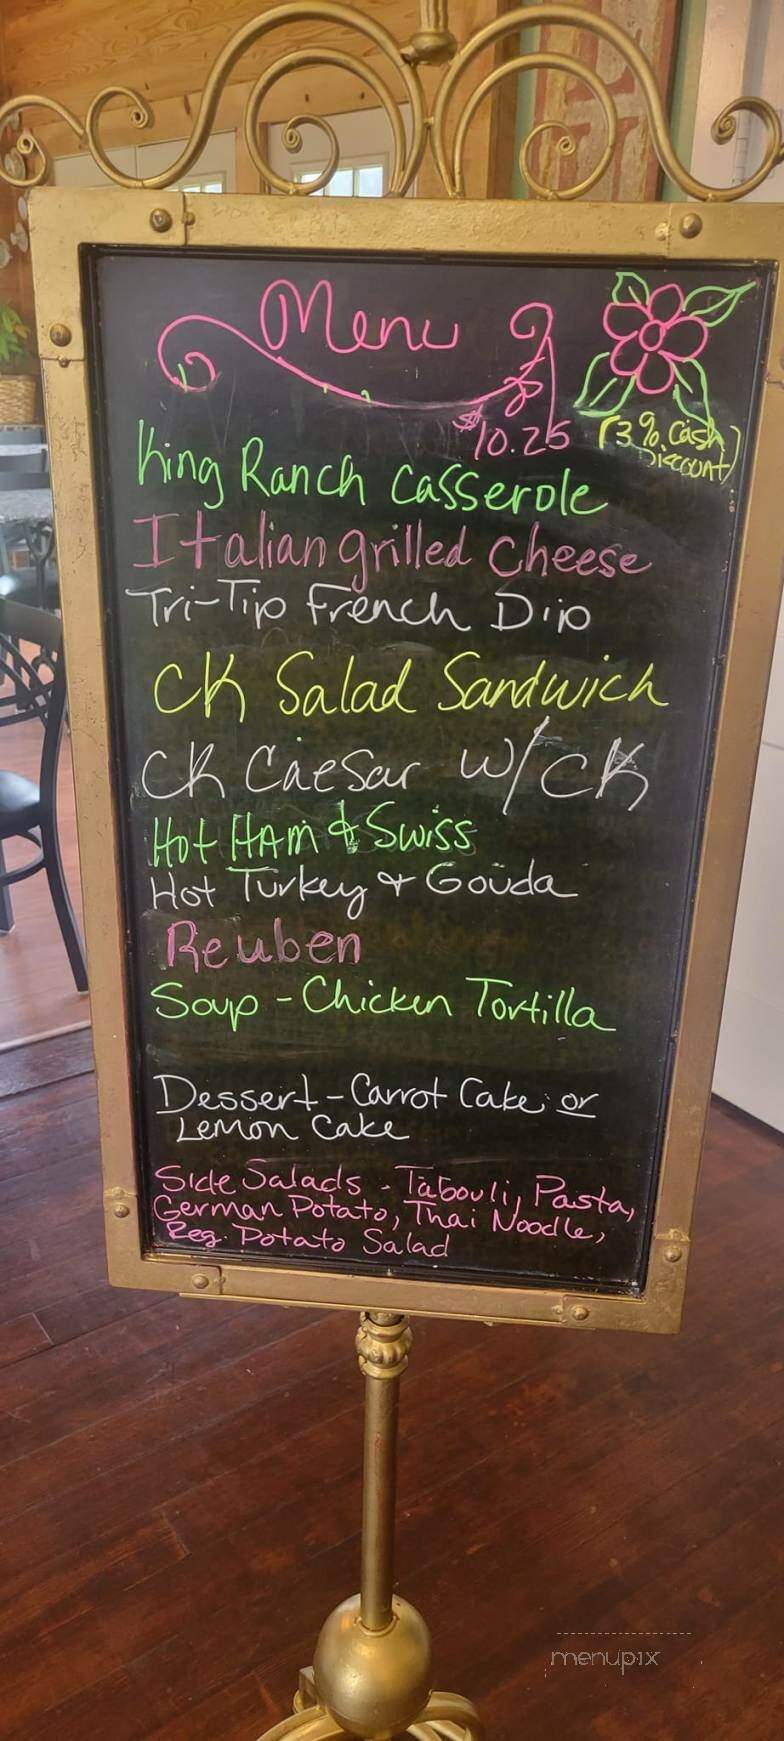 Menu
$10.25 (3% Cash
Discount)
King Ranch Casserole
Italian grilled cheese
Tri-Tip French Dip
CK Salad Sandwich
CK Caesar w/CK
Hot HAm & Swiss
Hot Turkey & Gouda
Reuben
Soup - Chicken Tortilla
Dessert - Carrot Cake or
Lemon Cake
Side Salads - Tabouli, Pasta,
German Potato, Thai Noodle,
Reg. Potato Salad
menupix